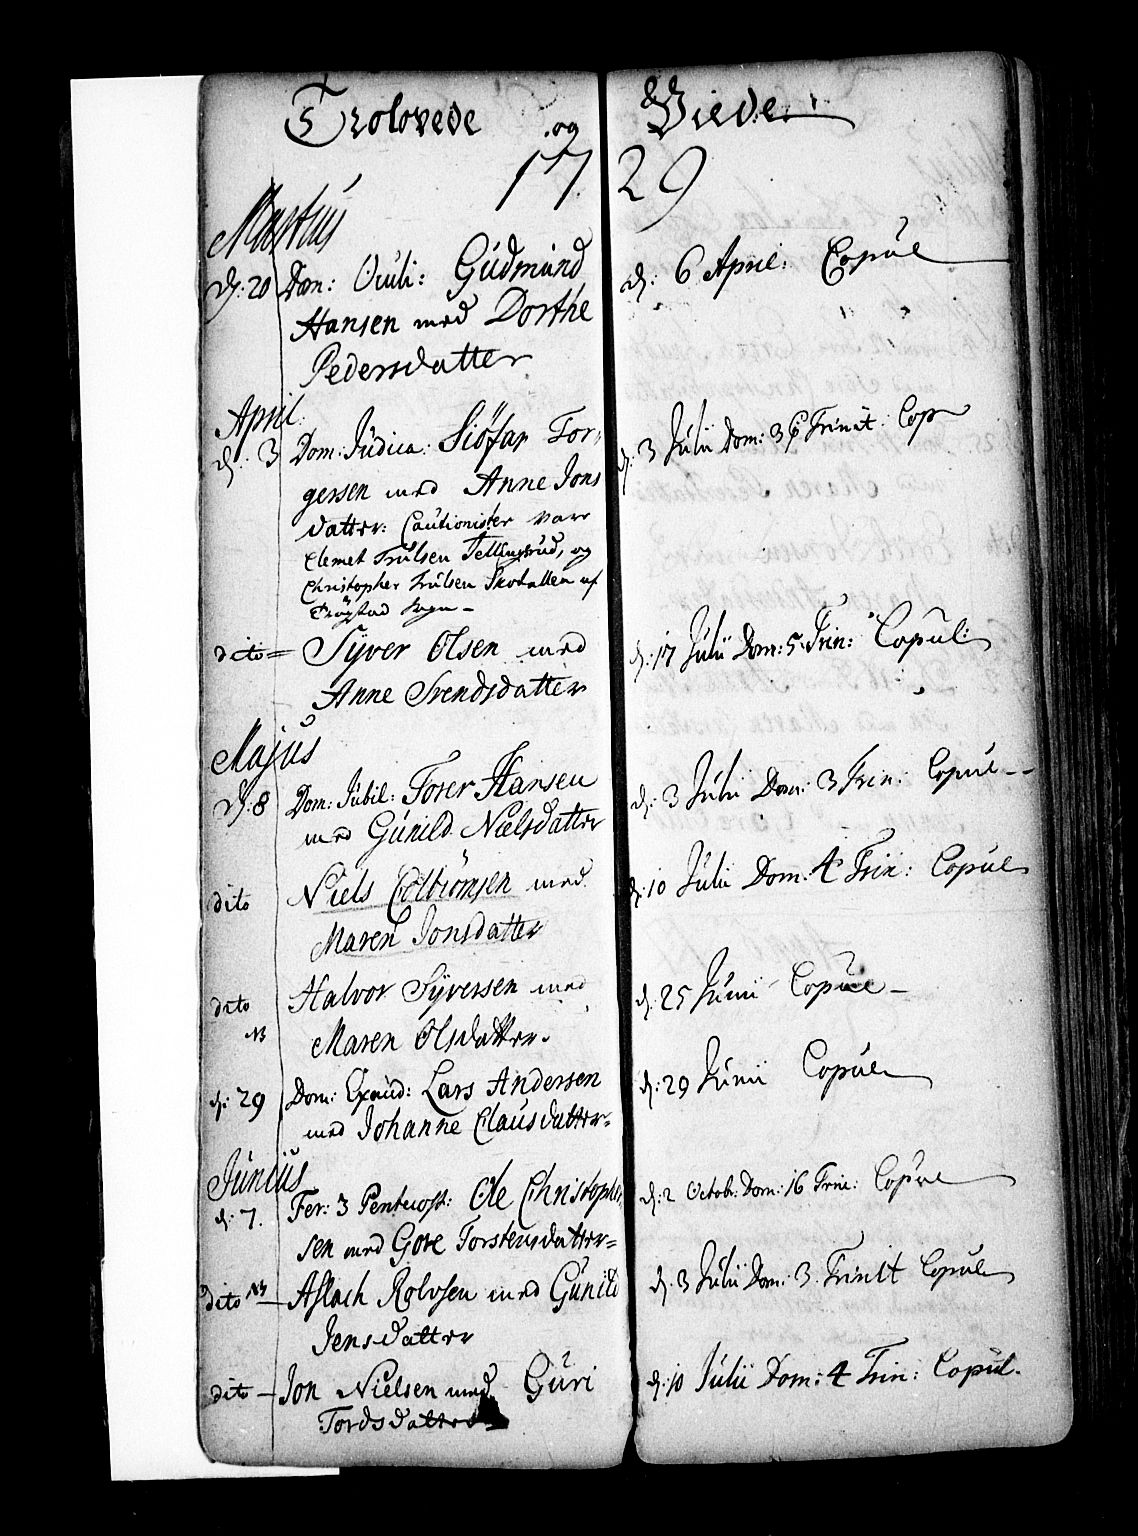 Trolovede og Viede
1729
Martius
d: 20 Dom: Oculi: Gudmund
Hansen med Dorthe
Pedersdatter
d: 6 April: Copul
April:
d: 3 Dom: Judica: Siøfar Tor,,
gersen med Anne Jons
datter: Cautionister var
Clemet Trulsen Tellingsrud, og
Christopher Trulsen Skotallen af
Trøgstad Sogn –
d: 3 Julii Dom: 3 p Trinit: Cop
dito = Syver Olsen med
Anne Svendsdatter
d: 17 Julii Dom: 5 Trin: Copul:
Majus
d: 8 Dom: Jubil: Torer Hansen
med Gunild Nielsdatter
d: 3 Julii Dom: 3 Trin: Copul – –
dito Niels Colbiømsen med
Maren Jonsdatter
d: 10 Julii Dom: 4 Trin: Copul
dito Halvor Syversen med
NB Maren Olsdatter.
d: 25 Junii Copul –
d: 29 Dom: Exaud: Lars Andersen
med Johanne Clausdatter =
d: 29 Junii Copul
Junius
d: 7. Fer: 3 Pentecost: Ole Christopher
sen med Gore Torstensdatter =
d: 2 Octob: Dom: 16 Trin: Copul
dito NB – Aslach Rolvsen med Gunild
Jensdatter
d: 3 Julii Dom: 3 Trinit Copul
dito – Jon Nielsen med Guri
Tordsdatter
d: 10 Julii Dom: 4 Trin: Copul.